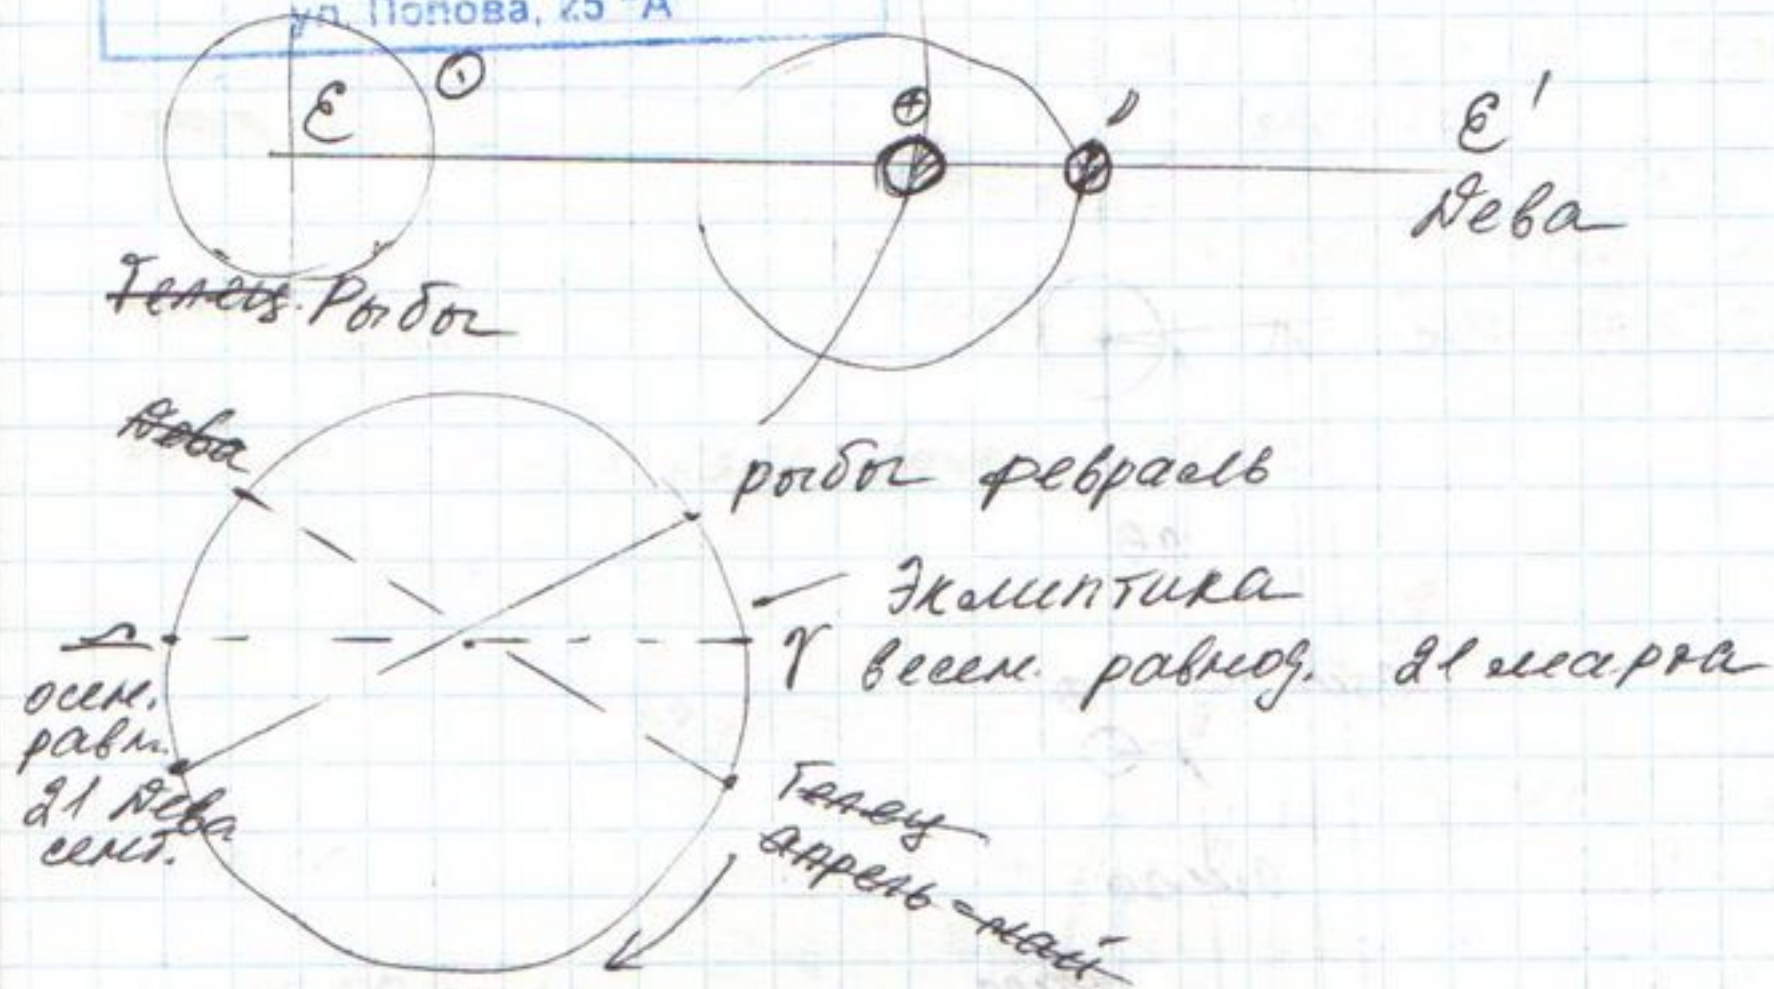 ул. Попова, 25 "А"
ε ☉
⊕
ε'
Дева
Телец. Рыбы
Дева
рыбы февраль
Эклиптика
♈ весен. равнод. 21 марта
♎
осен.
равн.
21 Дева
сент.
Телец
апрель-май